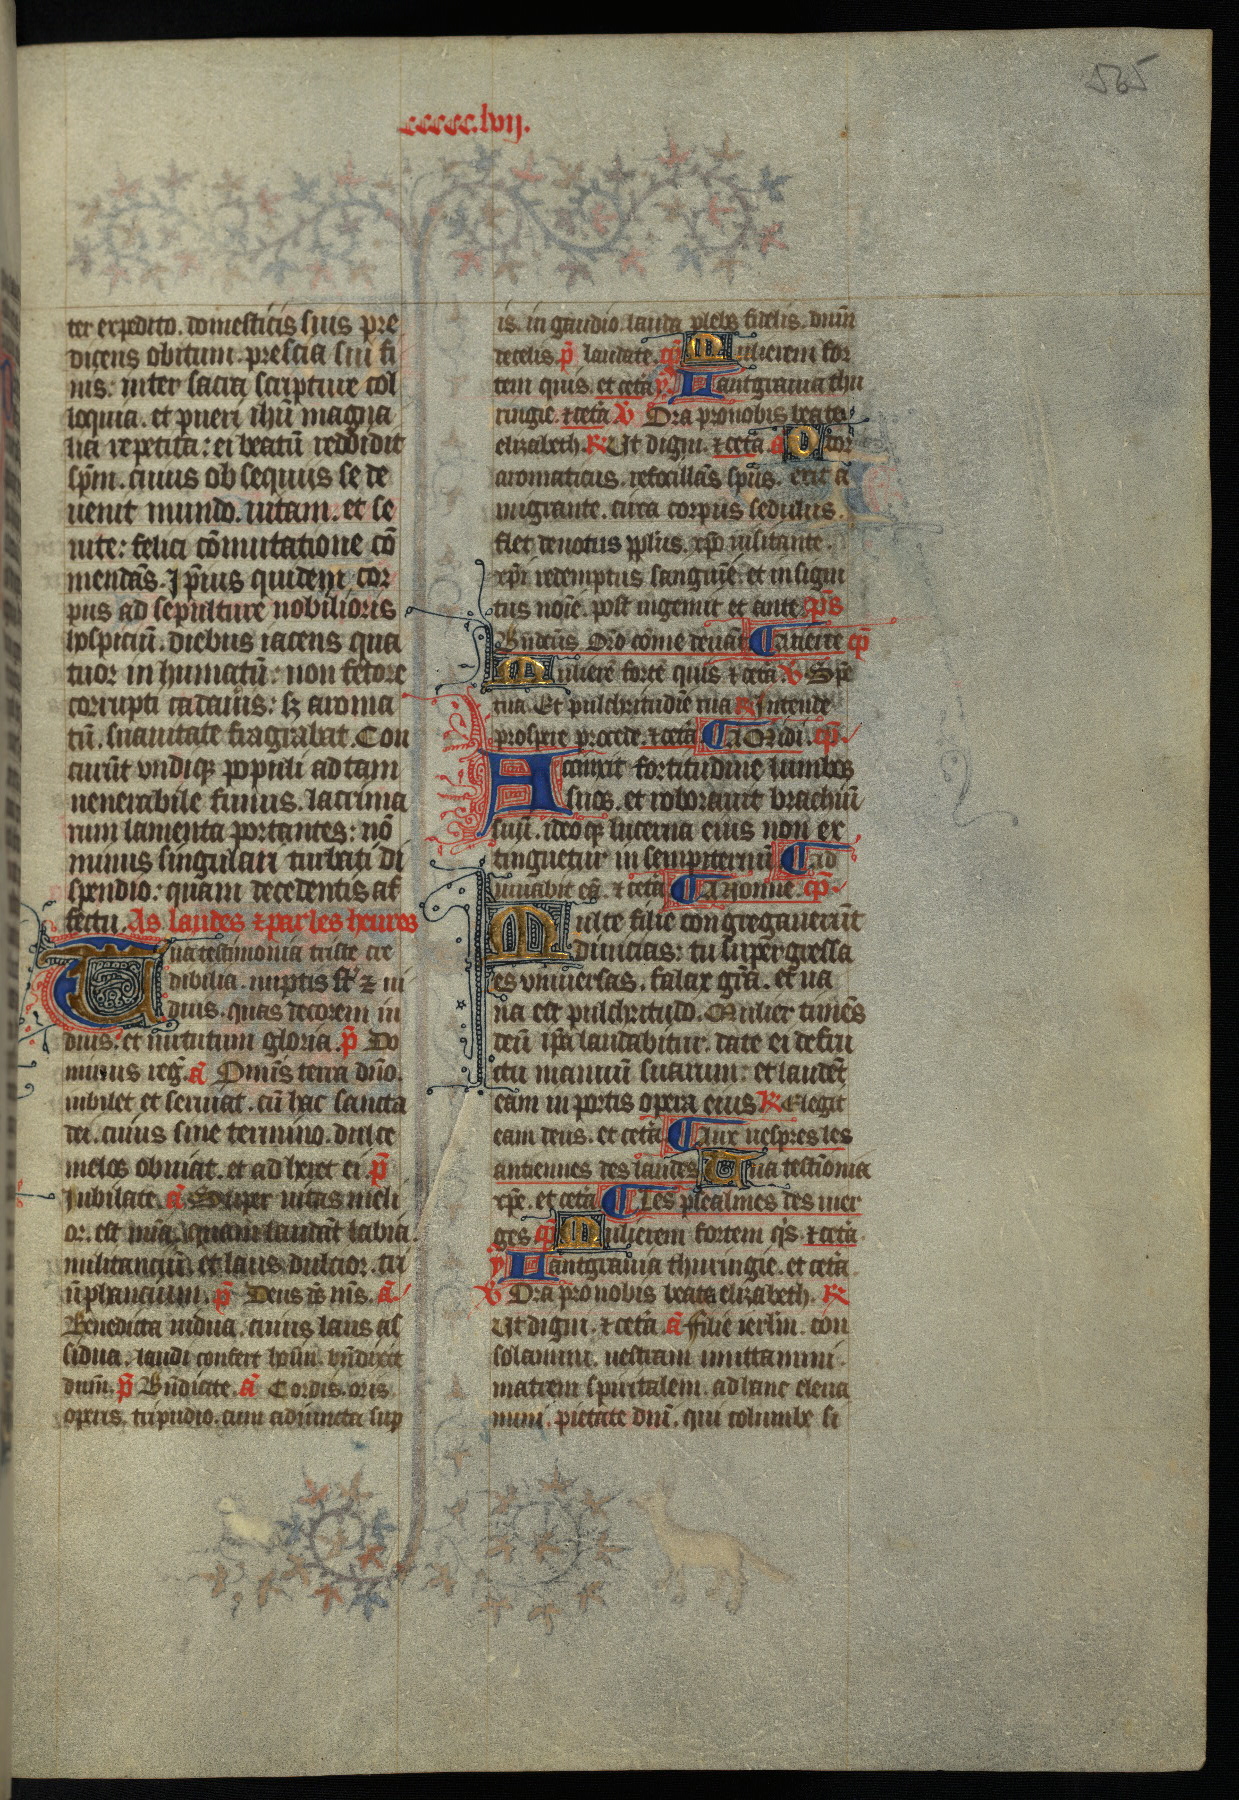 565
ccccc.lvij.
ter expedito. domesticis suis pre
dicens obitum. prescia sui fi
nis: inter sacra scripture col
loquia. et pueri ihū magna
lia repetita: ei beatū reddidit
spm. cuius obsequiis se de
uenit mundo. uitam. et se
uite: felici cōmutatione cō
mendās. Ip̄ius quidem cor
pus ad sepulture nobilioris
hospiciū. diebus iacens qua
tuor in humatū: non fetore
corrupti cadaūis: sz aroma
tū. suauitate fragrabat. Con
currūt vndiqz populi ad tam
uenerabile funus. lacrima
rum lamenta portantes: nō
minus singulari turbati di
spendio: quam decedentis af
fectu. As laudes et par les heures
Tua testimonia triste cre
dibilia. nuptis st' z ui
duis. quas decorem in
duis. et uirtutum gloria. p̄ Do
minus reg̃. ā Omīs terra dnō.
iubilet et seruiat. cū hac sancta
dei. cuius sine termino. dulce
melos obuiat. et adheret ei p̄
Iubilate. ā Super uitas meli
or. est mīa. quam laudāt labia.
militanciū. et laus dulcior. tri
ūphancium. p̄ Deus ds ms. ā
Benedicta uidua. cuius laus as
sidua. laudi confert hosm. bndixit
dum. p̄ Bndicite. ā Cordis. oris
operis. tripudio. cum adiuncta sup
is. in gaudio. lauda plebs fidelis. dnm
decelis. p̄ laudate. cp̄ Mulierem for
tem quis. et cetā y Lantgrauia thu
ringie. et cetā V Ora pronobis beata
elizabeth. R Ut digni. et cetā. a Odor
aromaticus. refocillās spūs. exit ā
migrante. circa corpus sedulus.
flet deuotus pplus. xpō uisitante.
xpī redemptus sanguīe. et insigni
tus noīe. post ingemit et ante. p̄s
Bndcūs Orō cōme deuāt Ca tierce cp̄
Mulierē fortē quis et cetā. V Spē
tua Et pulchritudīe tua R Intende
prospere procede. et cetā Ca Midi. cp̄
Accinxit fortitudine lumbos
suos. et roborauit brachiū
suū. ideoqz lucerna eius non ex
tinguetur in sempiternū Ad
iuuabit eā. et cetā Ca Nonne. cp̄
Multe filie congregauerūt
diuicias: tu supergressa
es vniuersas. falax grā. et ua
na est pulchritudo. Mulier timēs
deū ipā laudabitur. date ei de fru
ctu manuū suarum: et laudēt
eam in portis opera eius R Elegit
eam deus. et cetā Aux uespres les
antiennes des laudes Tua testīonia
xpē. et cetā Les psealmes des vier
ges cp̄ Mulierem fortem qis. et cetā
y Lantgrauia thuringie. et cetā.
V Ora pro nobis beata elizabeth. R
Ut digni. et cetā. ā Filie ierlm. con
solamini. uestram imittamini.
matrem spiritalem. ad hanc eleua
mini. pietate dnī. qui columbe si